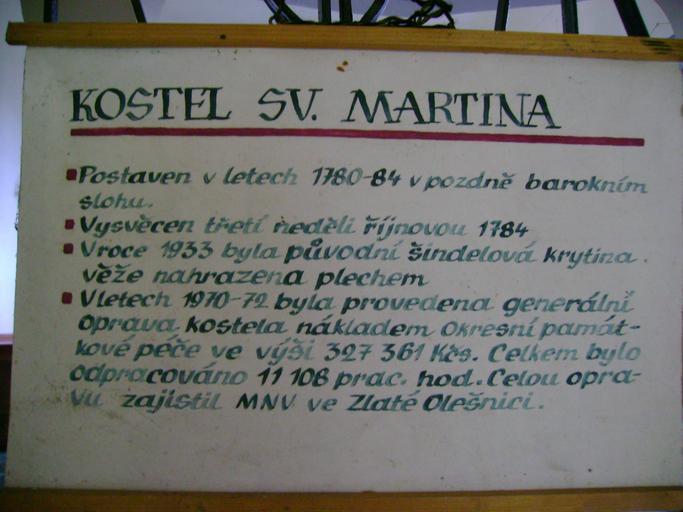 KOSTEL SV. MARTINA
Postaven v letech 1780-84 v pozdně barokním
slohu.
Vysvěcen třetí neděli říjnovou 1784
Vroce 1933 byla původní šindelová krytina
věže nahrazena plechem
Vletech 1970-72 byla provedena generální
oprava kostela nákladem Okresní památ-
kové péče ve výši 327 361 Kčs. Celkem bylo
odpracováno 11 108 prac. hod. Celou opra-
vu zajistil MNV ve Zlaté Olešnici.